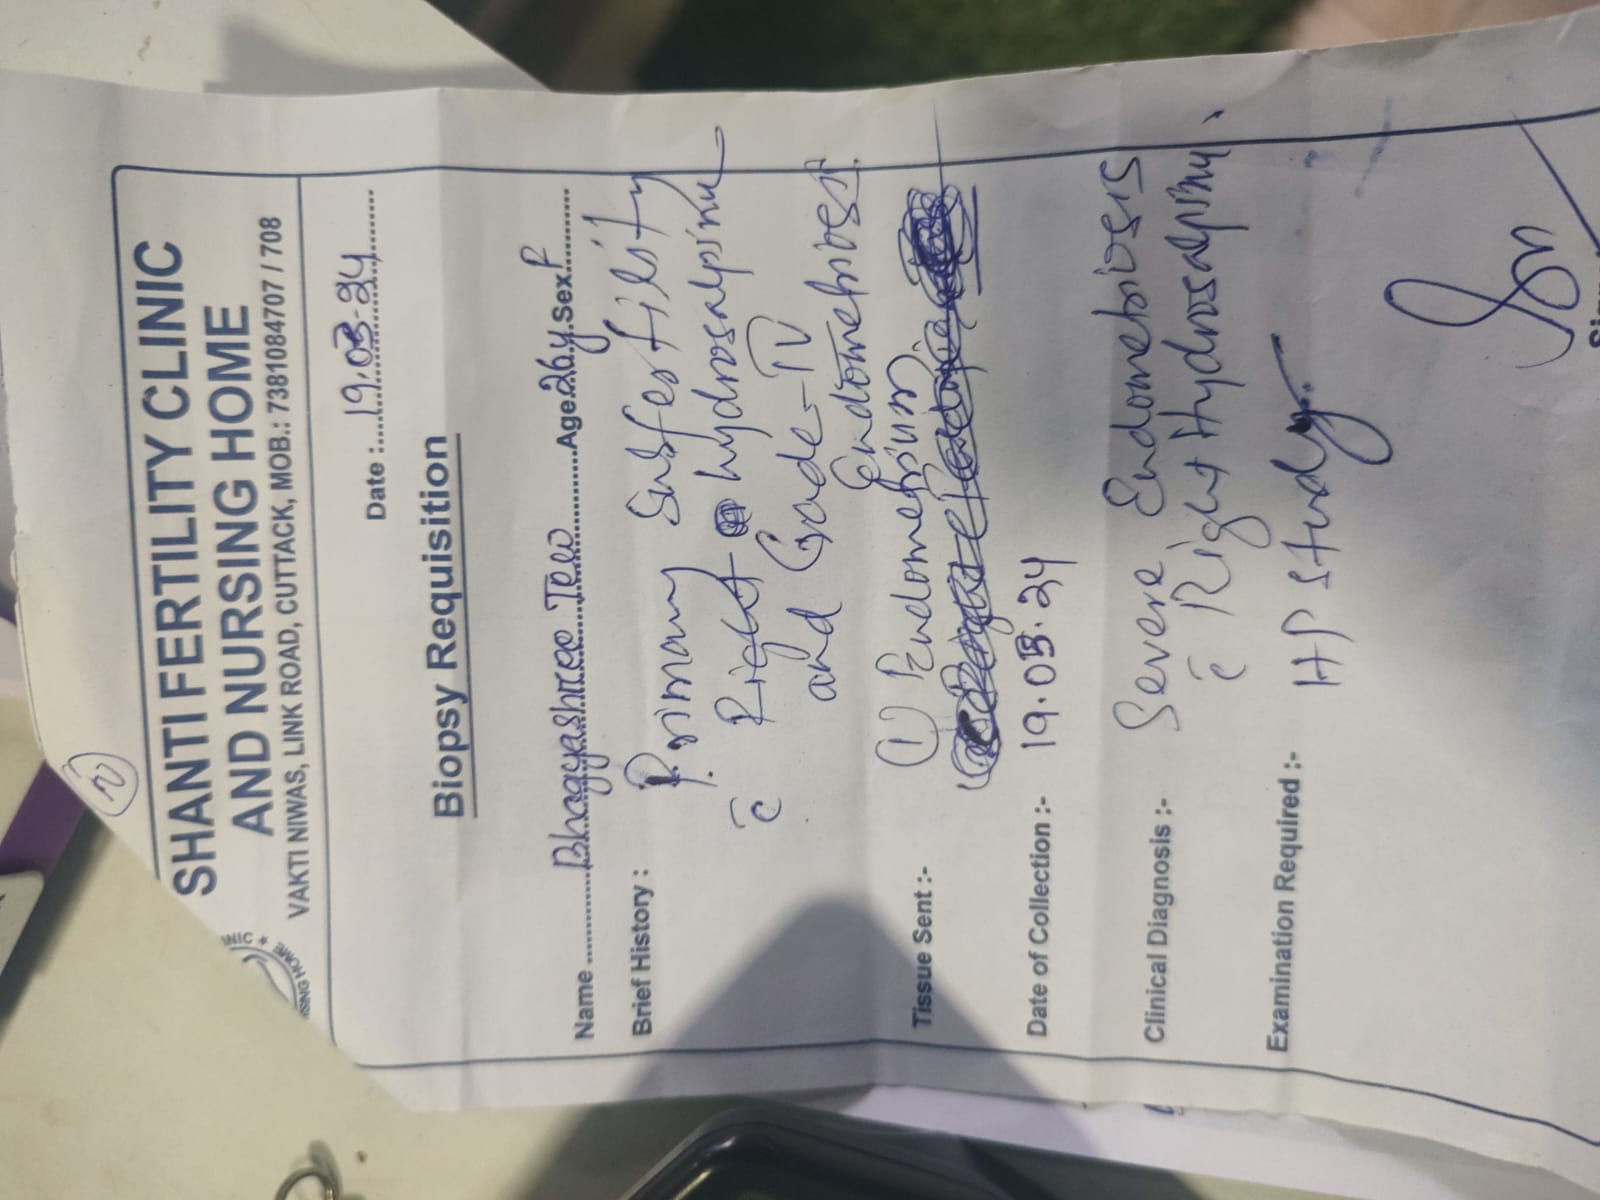 70
SHANTI FERTILITY CLINIC
AND NURSING HOME
VAKTI NIWAS, LINK ROAD, CUTTACK, MOB.: 7381084707 / 708
NIC ★
SING HOME
Date :..19.03.24
Biopsy Requisition
Name ........Bhagyashree Jew........Age.26y.Sex.F......
Brief History : Primary Infertility
c̄ Right hydrosalpinx
and Grade-IV
Endometriosis
Tissue Sent :- ① Endometrium.
Date of Collection :- 19.03.24
Clinical Diagnosis :- Severe Endometriosis
c̄ Right Hydrosalpinx.
Examination Required :- HP study.